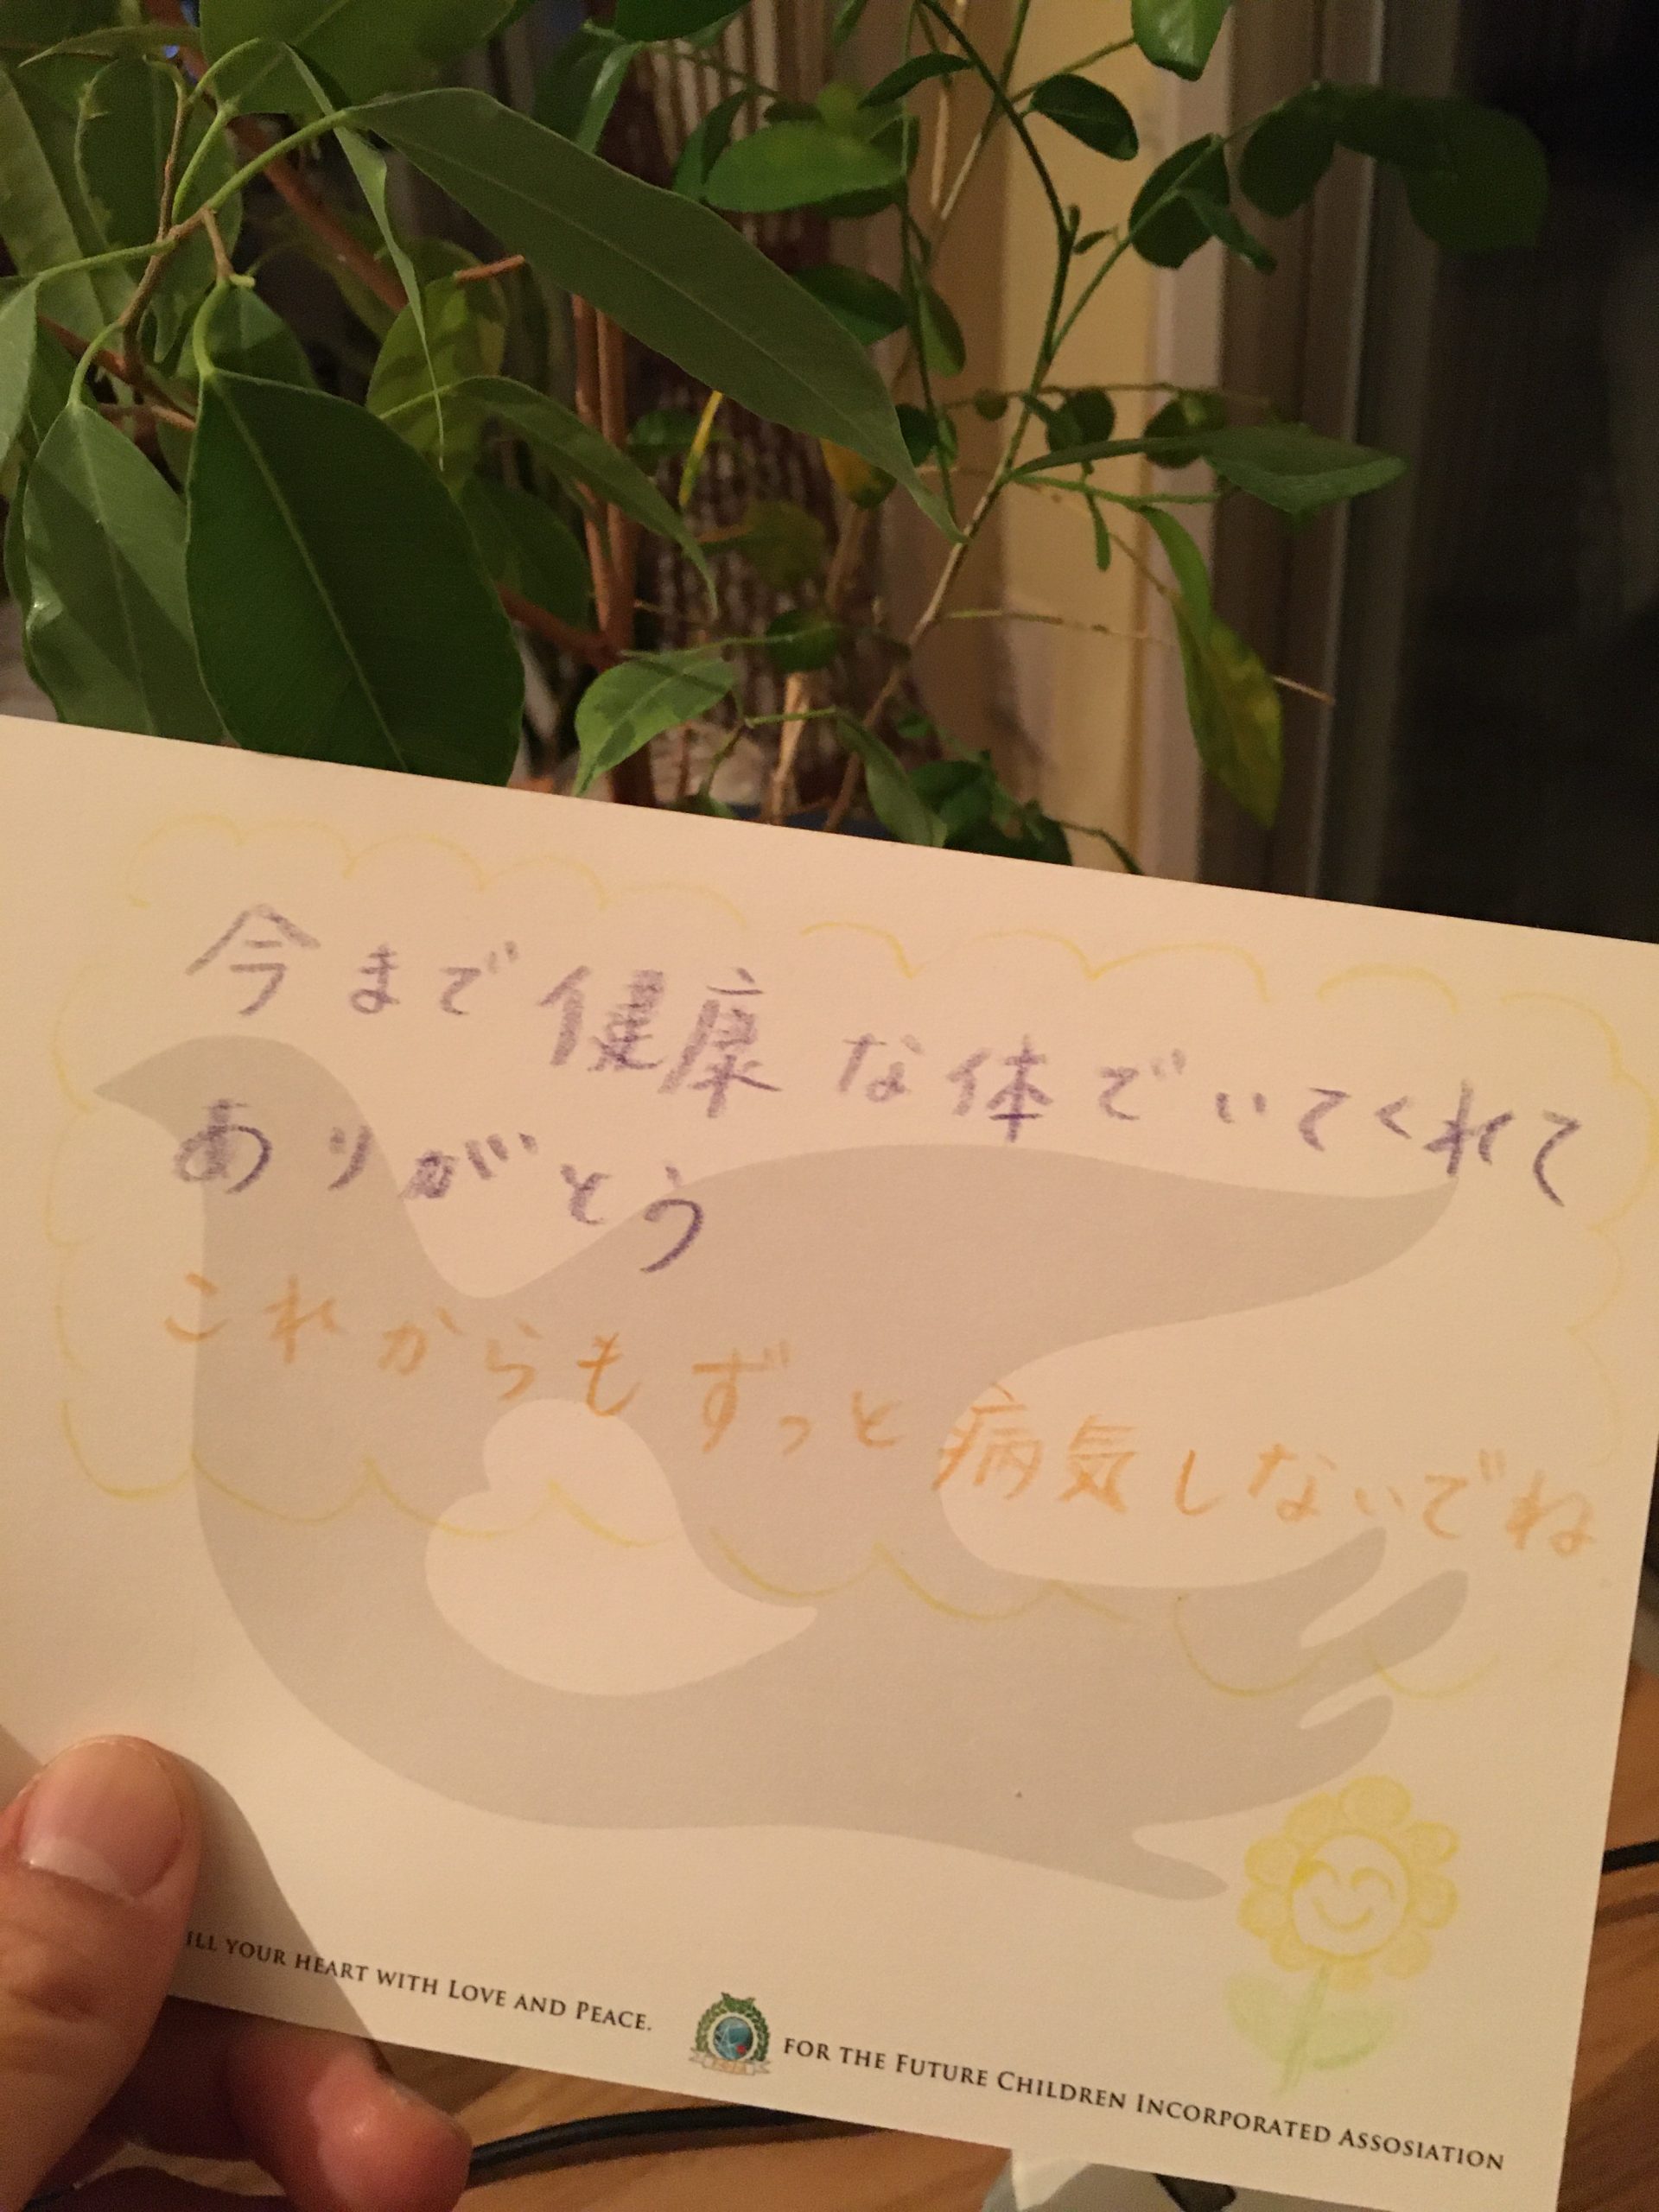 今まで健康な体でいてくれて
ありがとう
これからもずっと病気しないでね
ILL YOUR HEART WITH LOVE AND PEACE.
FOR THE FUTURE CHILDREN INCORPORATED ASSOSIATION